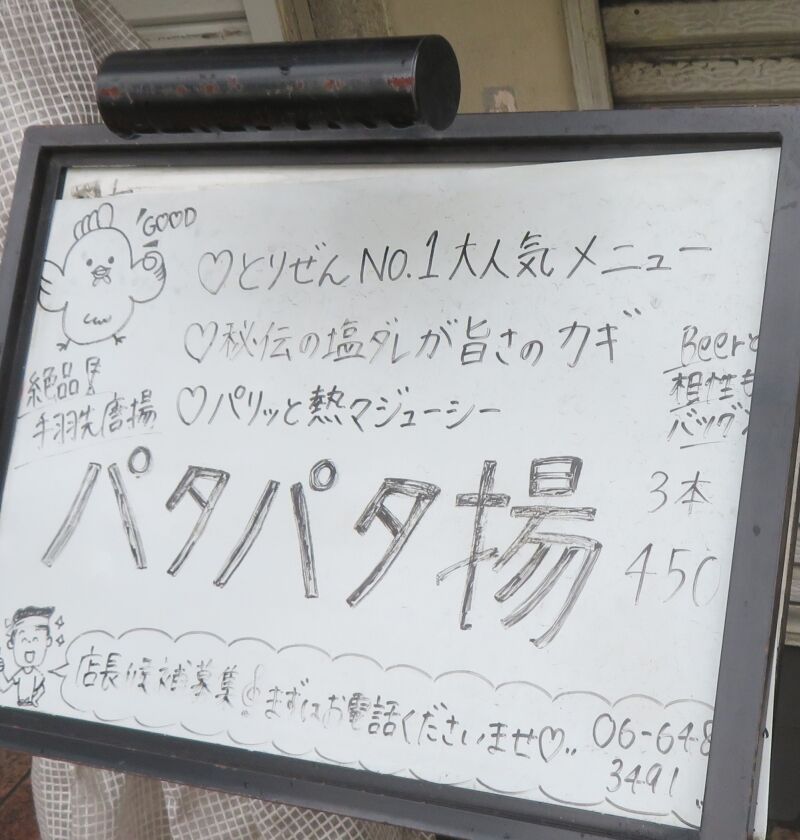 GOOD
♡とりぜんNO.1大人気メニュー
♡秘伝の塩ダレが旨さのカギ
♡パリッと熱々ジューシー
絶品!
手羽先唐揚
Beerと
相性も
バッグン
パタパタ揚
3本
450
店長候補募集♪まずはお電話くださいませ♡..
06-648
3491